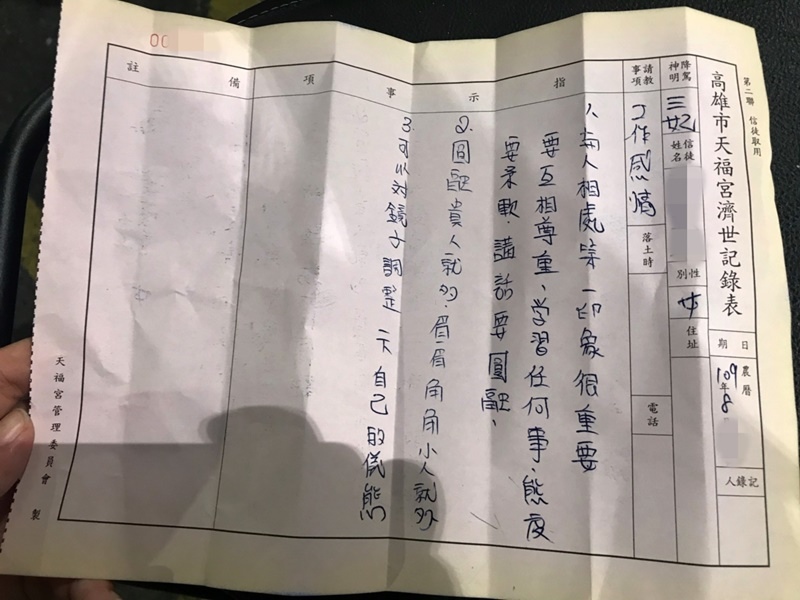 00
第二聯 信徒取用
高雄市天福宮濟世記錄表
日期
農曆
109年8
記錄人
降駕神明
三妃
信徒姓名
性別
女
住址
請教事項
工作感情
落土時
電話
指示事項
1、与人相處第一印象很重要
要互相尊重、学習任何事、態度
要柔軟、講話要圓融、
2、圓融貴人就多、眉眉角角小人就多
3、可以对鏡子調整一下自己的儀態
備註
天福宮管理委員會 製